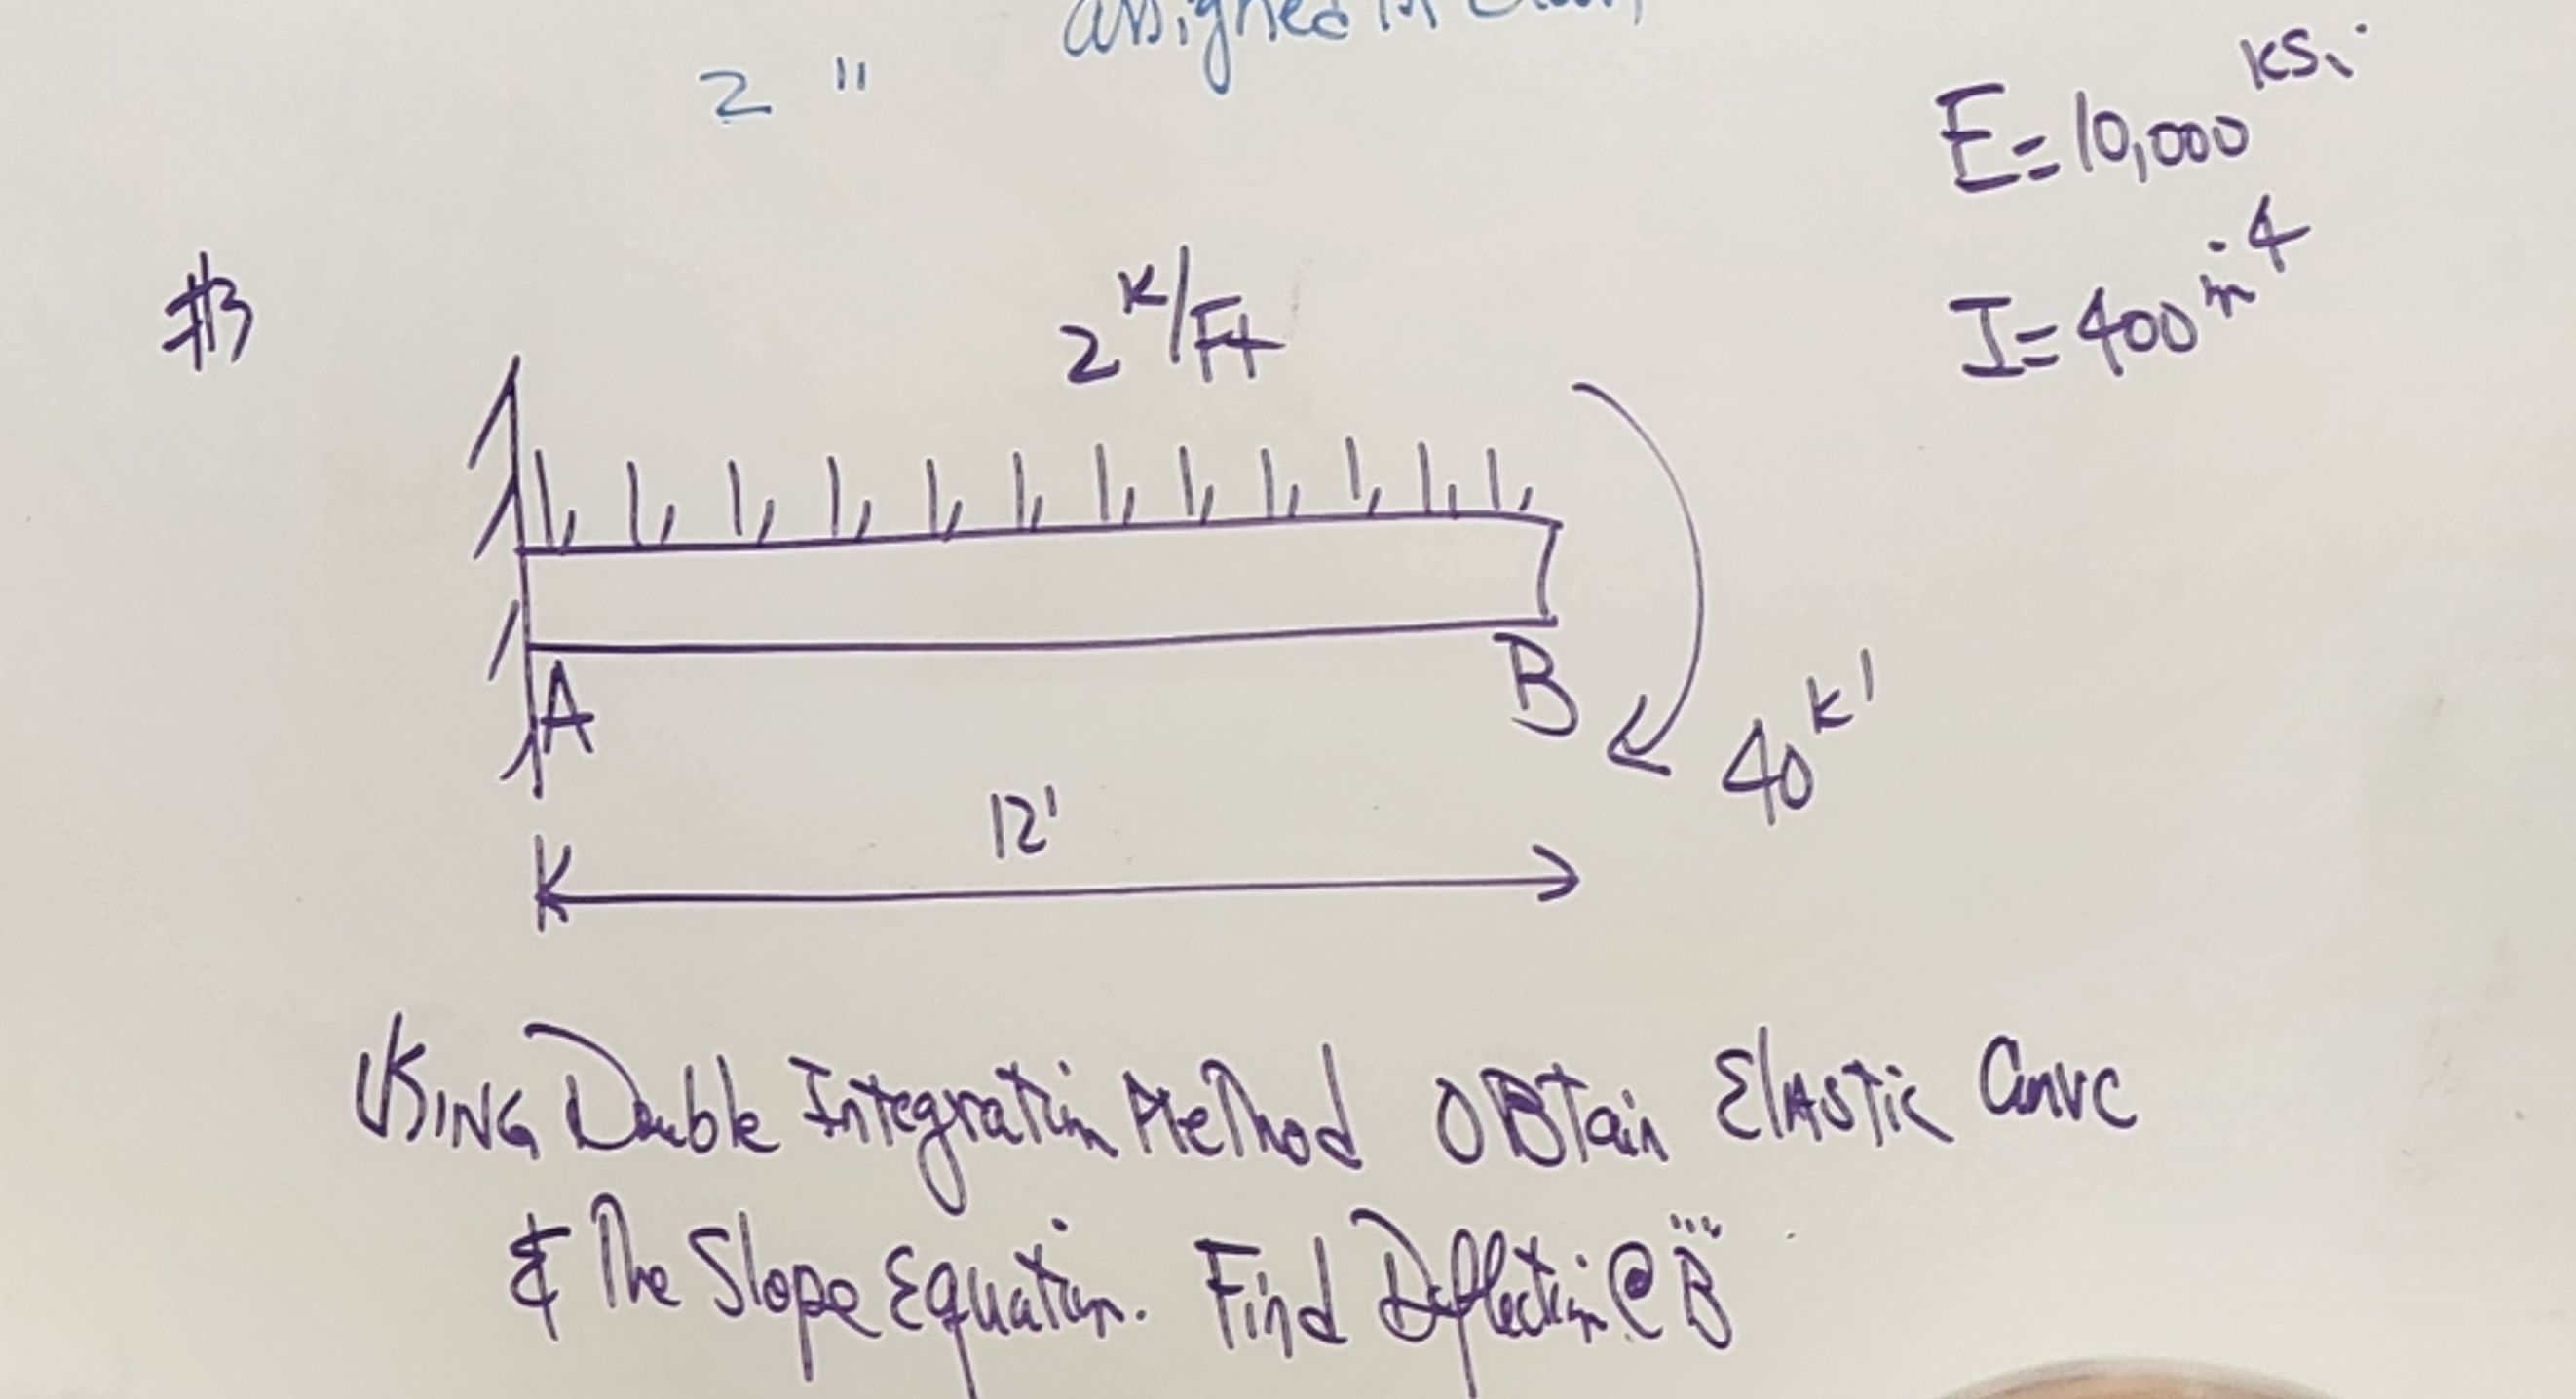 assigned in
2 "
E=10,000 ksi
I=400 in 4
#3
2 K/Ft
A
B
40 k'
12'
USING Double Integration Method OBtain ElAStic Curve
& The Slope Equation. Find Deflection @ B